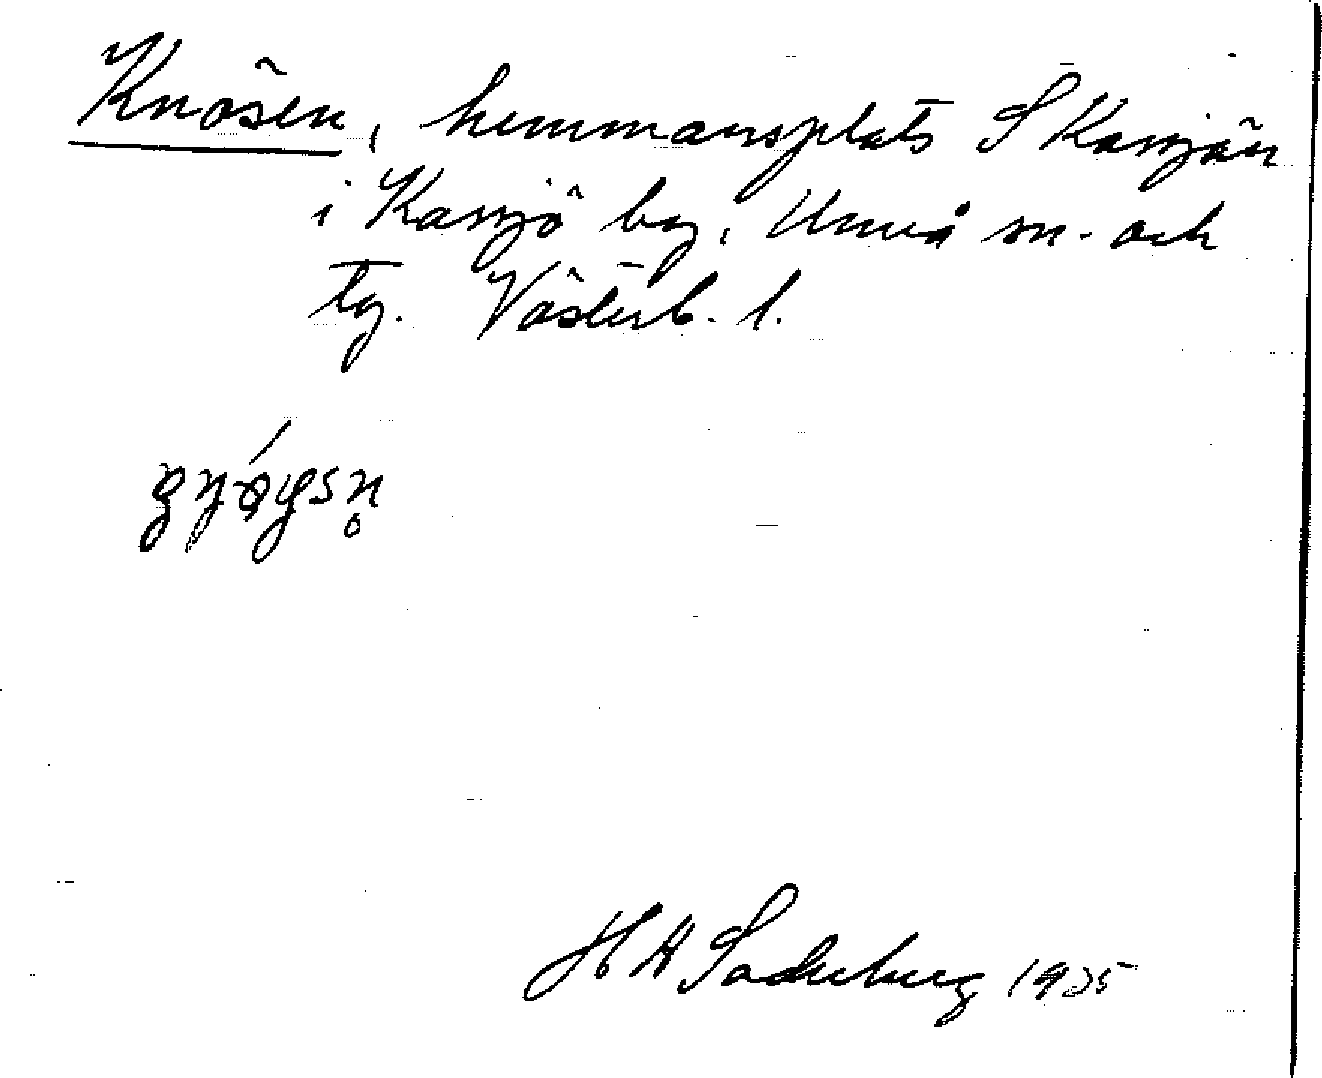 Knösen, hemmansplats S Kassjön
i Kassjö by, Umeå sn. och
tg. Västerb. l.
H A Söderberg 1935